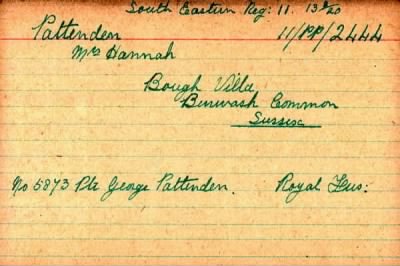 South Eastern Reg: 11. 13/20
Pattenden 11/PP/2444
Mrs Hannah
Bough Villa
Burwash Common
Sussex
No 5873 Pte George Pattenden. Royal Fus: